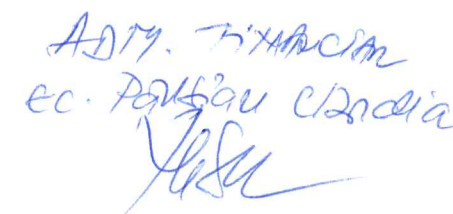 ADM. FINANCIAR
EC. Pantiau Claudia